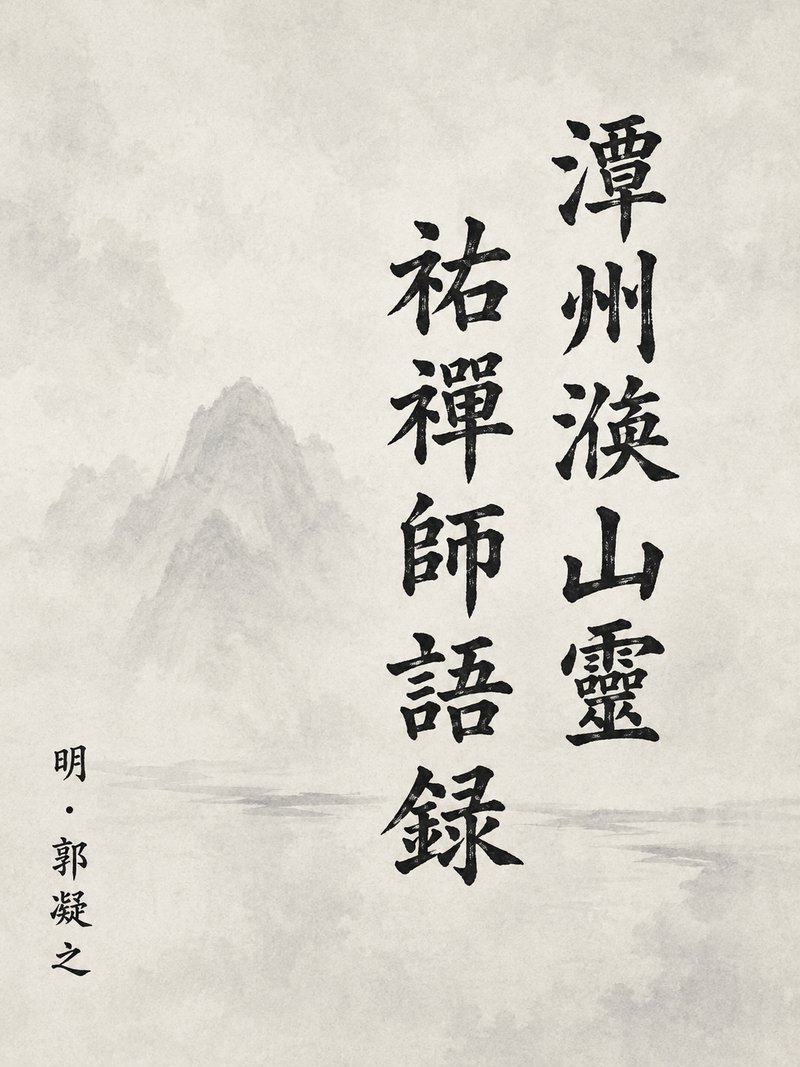 潭州山靈
祐禪師語録
明·郭凝之